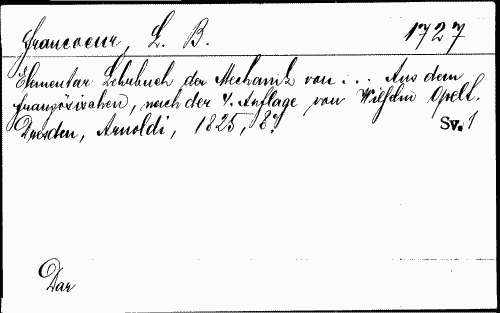 Francoeur, L. B. 1727
Elementar Lehrbuch der Mechanik von ... Aus dem
französischen, nach der 4. Auflage von Wilhelm Opelt.
Dresden, Arnoldi, 1825, 8°.
Sv. 1
Dar